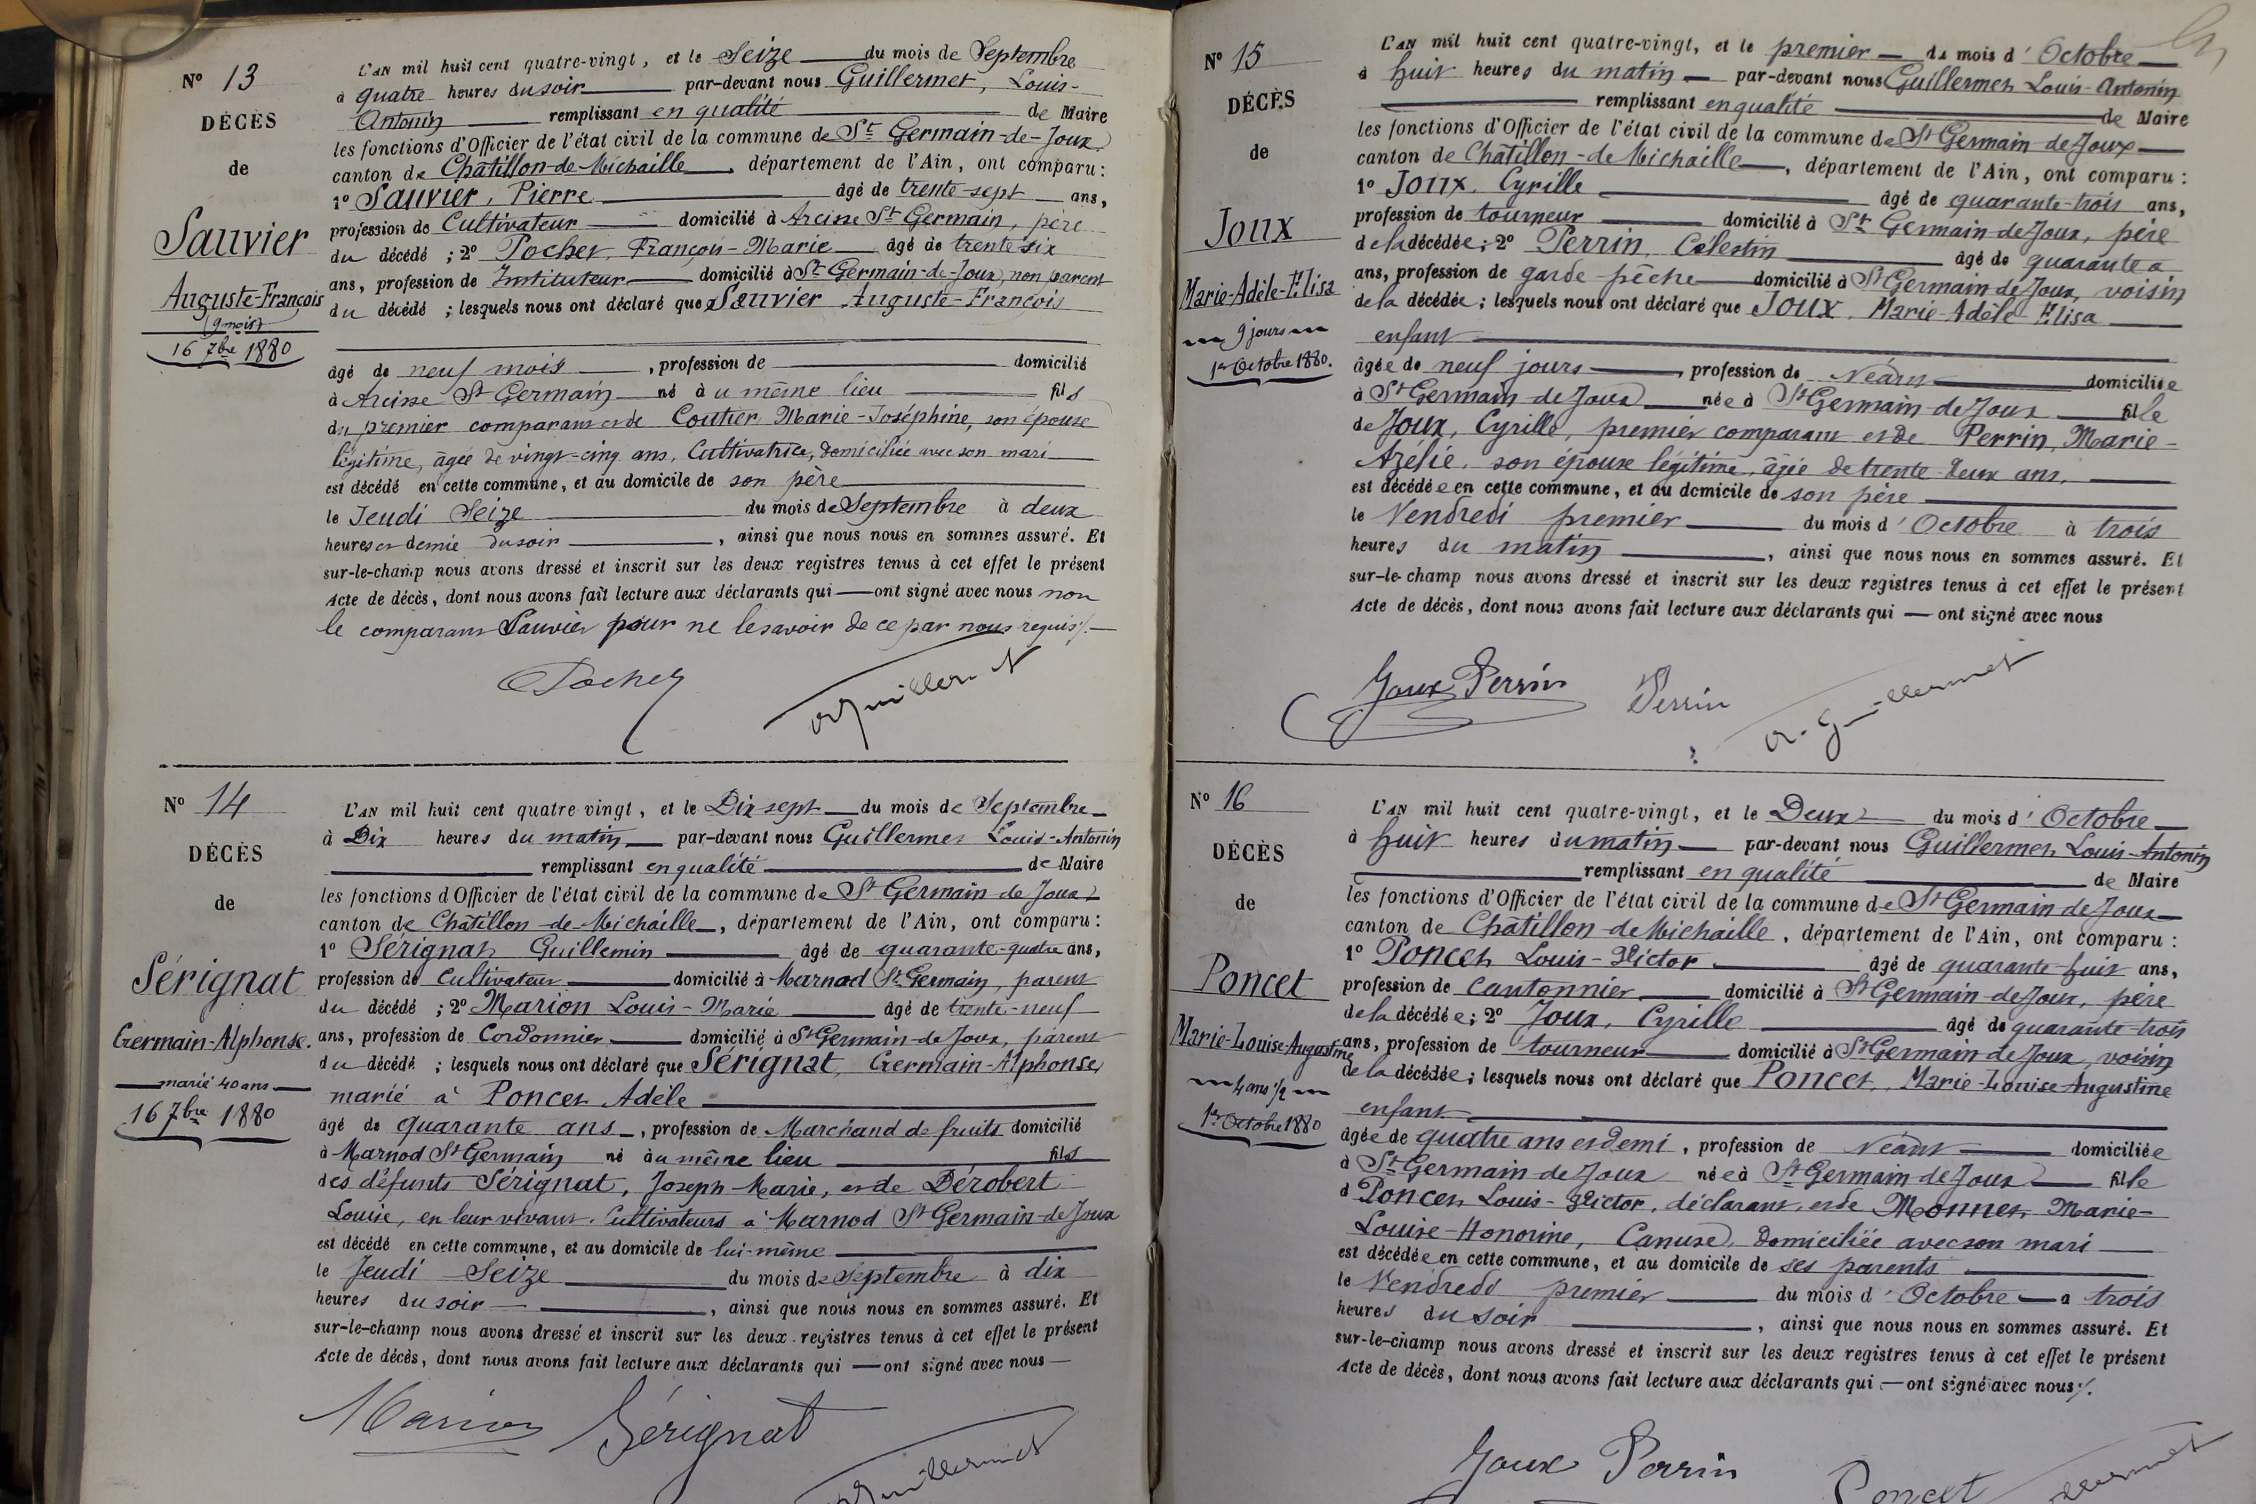 N° 13
DÉCÈS
de
Sauvier
Auguste-François
(9 mois)
16 7bre 1880
L'AN mil huit cent quatre-vingt, et le Seize du mois de Septembre
à quatre heures du soir par-devant nous Guillermet, Louis-
Antonin remplissant en qualité de Maire
les fonctions d'Officier de l'état civil de la commune de St Germain-de-Joux
canton de Châtillon-de-Michaille, département de l'Ain, ont comparu :
1° Sauvier, Pierre âgé de trente-sept ans,
profession de Cultivateur domicilié à Arcine St Germain, père
du décédé ; 2° Pochet, François-Marie âgé de trente six
ans, profession de Instituteur domicilié à St Germain-de-Joux, non parent
du décédé ; lesquels nous ont déclaré que Sauvier Auguste-François
âgé de neuf mois, profession de domicilié
à Arcine St Germain né à u même lieu fils
du premier comparant et de Coutier Marie-Joséphine, son épouse
légitime, âgée de vingt-cinq ans, Cultivatrice, domiciliée avec son mari
est décédé en cette commune, et au domicile de son père
le Jeudi Seize du mois de Septembre à deux
heures et demie du soir, ainsi que nous nous en sommes assuré. Et
sur-le-champ nous avons dressé et inscrit sur les deux registres tenus à cet effet le présent
Acte de décès, dont nous avons fait lecture aux déclarants qui — ont signé avec nous non
le comparant Sauvier pour ne le savoir de ce par nous requis ./.
Pochet
A. Guillermet
N° 14
DÉCÈS
de
Sérignat
Germain-Alphonse.
marié 40 ans
16 7bre 1880
L'AN mil huit cent quatre vingt, et le Dix sept du mois de Septembre
à Dix heures du matin par-devant nous Guillermet Louis-Antonin
remplissant en qualité de Maire
les fonctions d'Officier de l'état civil de la commune de St Germain de Joux
canton de Châtillon-de-Michaille, département de l'Ain, ont comparu :
1° Sérignat Guillemin âgé de quarante-quatre ans,
profession de Cultivateur domicilié à Marnod St Germain, parent
du décédé ; 2° Marion Louis-Marie âgé de trente-neuf
ans, profession de Cordonnier domicilié à St Germain-de-Joux, parent
du décédé ; lesquels nous ont déclaré que Sérignat, Germain-Alphonse,
marié à Poncet Adèle
âgé de quarante ans, profession de Marchand de fruits domicilié
à Marnod St Germain né à u même lieu fils
des défunts Sérignat, Joseph-Marie, et de Dérobert
Louise, en leur vivant Cultivateurs à Marnod St Germain-de-Joux
est décédé en cette commune, et au domicile de lui-même
le Jeudi Seize du mois de Septembre à dix
heures du soir, ainsi que nous nous en sommes assuré. Et
sur-le-champ nous avons dressé et inscrit sur les deux registres tenus à cet effet le présent
Acte de décès, dont nous avons fait lecture aux déclarants qui — ont signé avec nous —
Marion Sérignat
A Guillermet
N° 15
DÉCÈS
de
Joux
Marie-Adèle-Elisa
9 jours
1er Octobre 1880.
L'AN mil huit cent quatre-vingt, et le premier du mois d' Octobre
à huit heures du matin par-devant nous Guillermet Louis-Antonin
remplissant en qualité de Maire
les fonctions d'Officier de l'état civil de la commune de St Germain de Joux
canton de Châtillon-de-Michaille, département de l'Ain, ont comparu :
1° Joux Cyrille âgé de quarante-trois ans,
profession de tourneur domicilié à St Germain-de-Joux, père
de la décédée ; 2° Perrin, Célestin âgé de quarante
ans, profession de garde pêche domicilié à St Germain de Joux, voisin
de la décédée ; lesquels nous ont déclaré que Joux, Marie-Adèle Elisa
enfant
âgée de neuf jours, profession de Néant domiciliée
à St Germain-de-Joux née à St Germain de Joux fille
de Joux, Cyrille, premier comparant et de Perrin, Marie-
Azélie, son épouse légitime, âgée de trente-deux ans,
est décédée en cette commune, et au domicile de son père
le Vendredi premier du mois d' Octobre à trois
heures du matin, ainsi que nous nous en sommes assuré. Et
sur-le-champ nous avons dressé et inscrit sur les deux registres tenus à cet effet le présent
Acte de décès, dont nous avons fait lecture aux déclarants qui — ont signé avec nous
Joux Perrin Perrin
A. Guillermet
N° 16
DÉCÈS
de
Poncet
Marie-Louise-Augustine
4 ans 1/2
1er Octobre 1880
L'AN mil huit cent quatre-vingt, et le Deux du mois d' Octobre
à huit heures du matin par-devant nous Guillermet Louis-Antonin
remplissant en qualité de Maire
les fonctions d'Officier de l'état civil de la commune de St Germain de Joux
canton de Châtillon-de-Michaille, département de l'Ain, ont comparu :
1° Poncet Louis-Victor âgé de quarante-huit ans,
profession de cantonnier domicilié à St Germain-de-Joux, père
de la décédée ; 2° Joux, Cyrille âgé de quarante-trois
ans, profession de tourneur domicilié à St Germain de Joux, voisin
de la décédée ; lesquels nous ont déclaré que Poncet, Marie-Louise Augustine
enfant
âgée de quatre ans et demi, profession de Néant domiciliée
à St Germain-de-Joux née à St Germain-de-Joux fille
d Poncet Louis-Victor, déclarant, et de Monnet Marie-
Louise-Honorine, Canuse, domiciliée avec son mari
est décédée en cette commune, et au domicile de ses parents
le Vendredi premier du mois d' Octobre à trois
heures du soir, ainsi que nous nous en sommes assuré. Et
sur-le-champ nous avons dressé et inscrit sur les deux registres tenus à cet effet le présent
Acte de décès, dont nous avons fait lecture aux déclarants qui — ont signé avec nous ./.
Joux Perrin Poncet